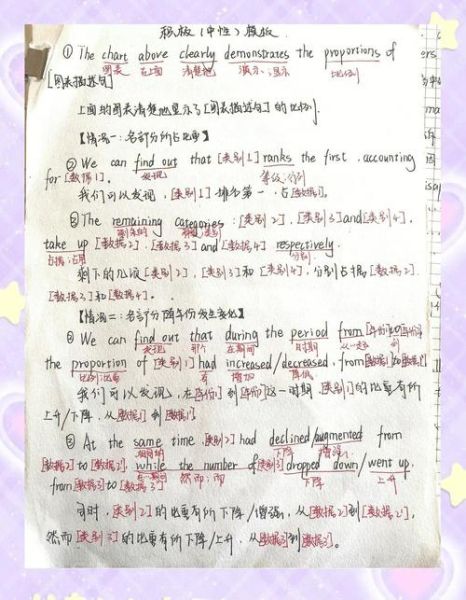 积极（中性）模板
① The chart above clearly demonstrates the proportions of
图表 在上面 清楚地 演示、显示 比例
[图表描述句]
上面的图表清楚地显示了[图表描述句]的比例.
【情况一：各部分所占比重】
② We can find out that [类别1] ranks the first, accounting
发现
for [数据1],
我们可以发现, [类别1]排名第一, 占[数据1].
③ The remaining categories : [类别2], [类别3] and [类别4],
剩余的
take up [数据2], [数据3] and [数据4] respectively.
占据；占用 分别
剩下的几项[类别2], [类别3]和[类别4], 分别占据[数据2].
[数据3]和[数据4]。
【情况二：各部分随年份发生变化】
④ We can find out that during the period from [年份1]到[年份2]
发现 那个 在期间 时期
the proportion of [类别1] had increased/decreased, from [数据1] to [数据1']
比例；比重 有 增加 降低
我们可以发现, 在[年份1]到[年份2]这一时期[类别1]的比重有所
上升/下降, 从[数据1]到[数据1']
⑤ At the same time, [类别2] had declined/augmented from
下降 增强
[数据2] to [数据2'], while the number of [类别3] dropped down/went up,
然而；而 下降 上升
from [数据3] to [数据3']
同时, [类别2]的比重有所下降/增强, 从[数据2]到[数据2'],
然而[类别3]的比重有所下降/上升, 从[数据3]到[数据3']。